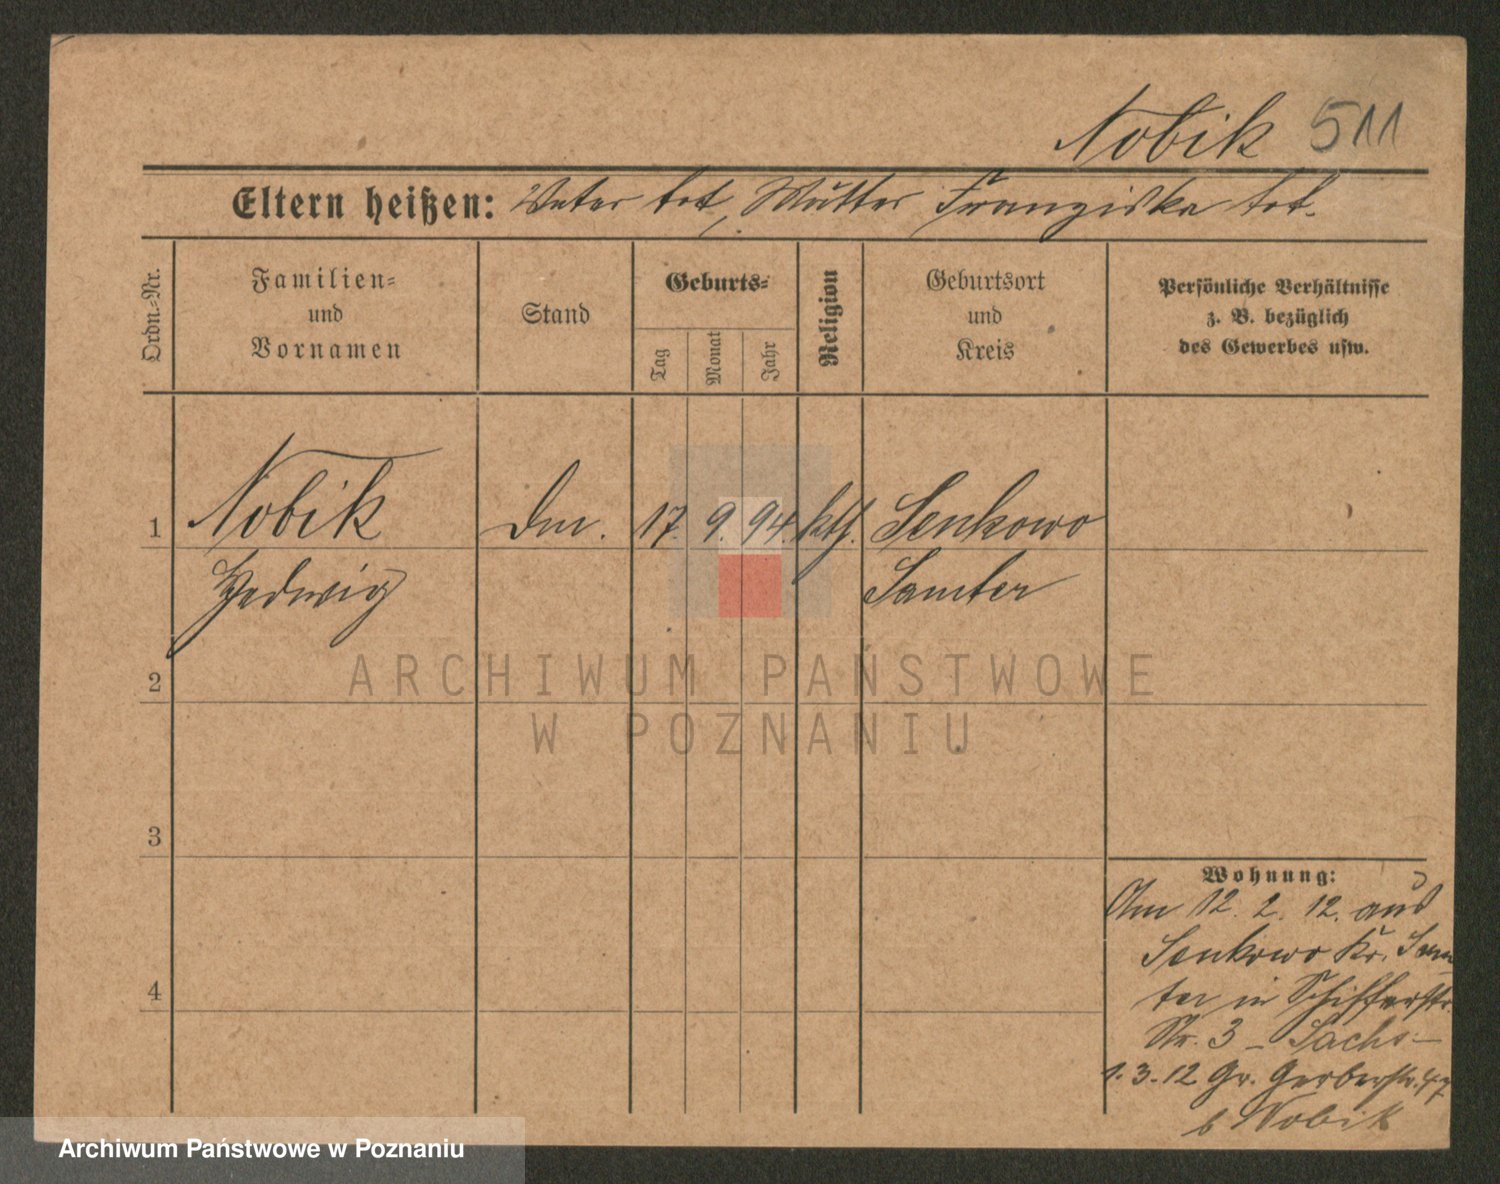 Nobik 511
Eltern heißen: Vater tot, Mutter Franziska tot.
Ordn.-Nr.
Familien-
und
Vornamen
Stand
Geburts-
Tag
Monat
Jahr
Religion
Geburtsort
und
Kreis
Persönliche Verhältnisse
z. B. bezüglich
des Gewerbes usw.
1 Nobik Dm. 17. 9. 94. kth. Senkowo
Hedwig Samter
2
ARCHIWUM PAŃSTWOWE
W POZNANIU
3
4
Wohnung:
Am 12. 2. 12. aus
Senkowo Kr. Sam-
ter in Schifferstr.
Nr. 3 - Sachs -
1.3.12 Gr. Gerberstr. 47
b Nobik
Archiwum Państwowe w Poznaniu